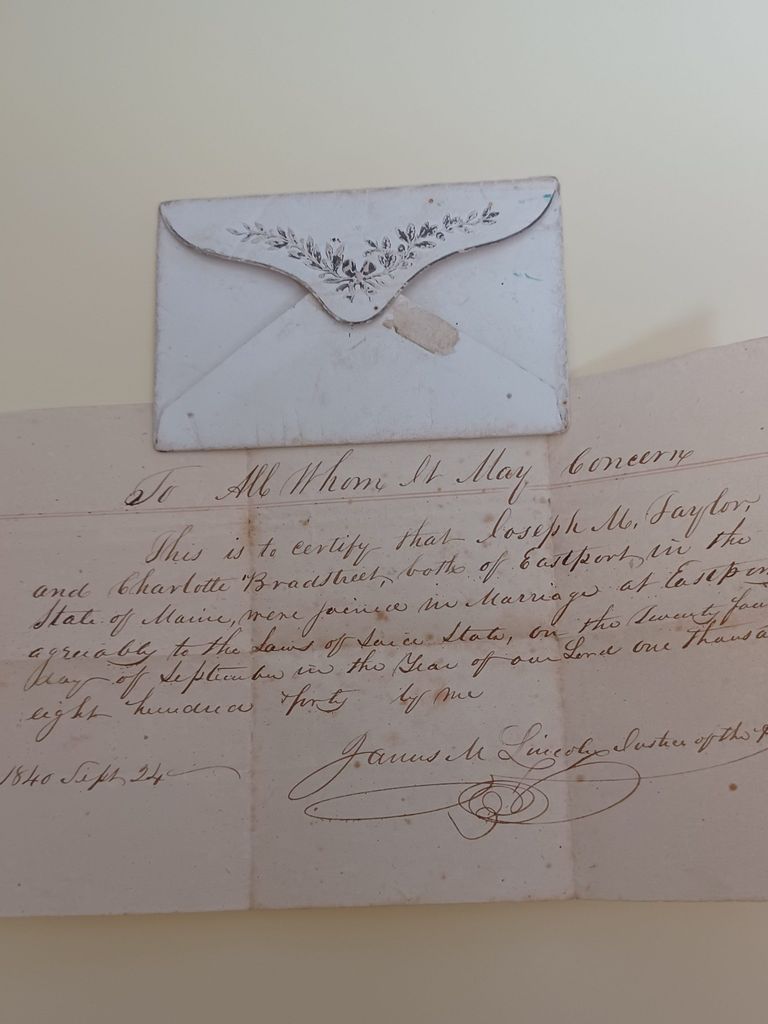 To All Whom It May Concern
This is to certify that Joseph M. Taylor,
and Charlotte Bradstreet, both of Eastport, in the
State of Maine, were joined in Marriage at Eastpor
agreeably to the Laws of said State, on the Twenty fou
day of September in the Year of our Lord one thousa
eight hundred & forty by me
James M Lincoln Justice of the P
1840 Sept 24